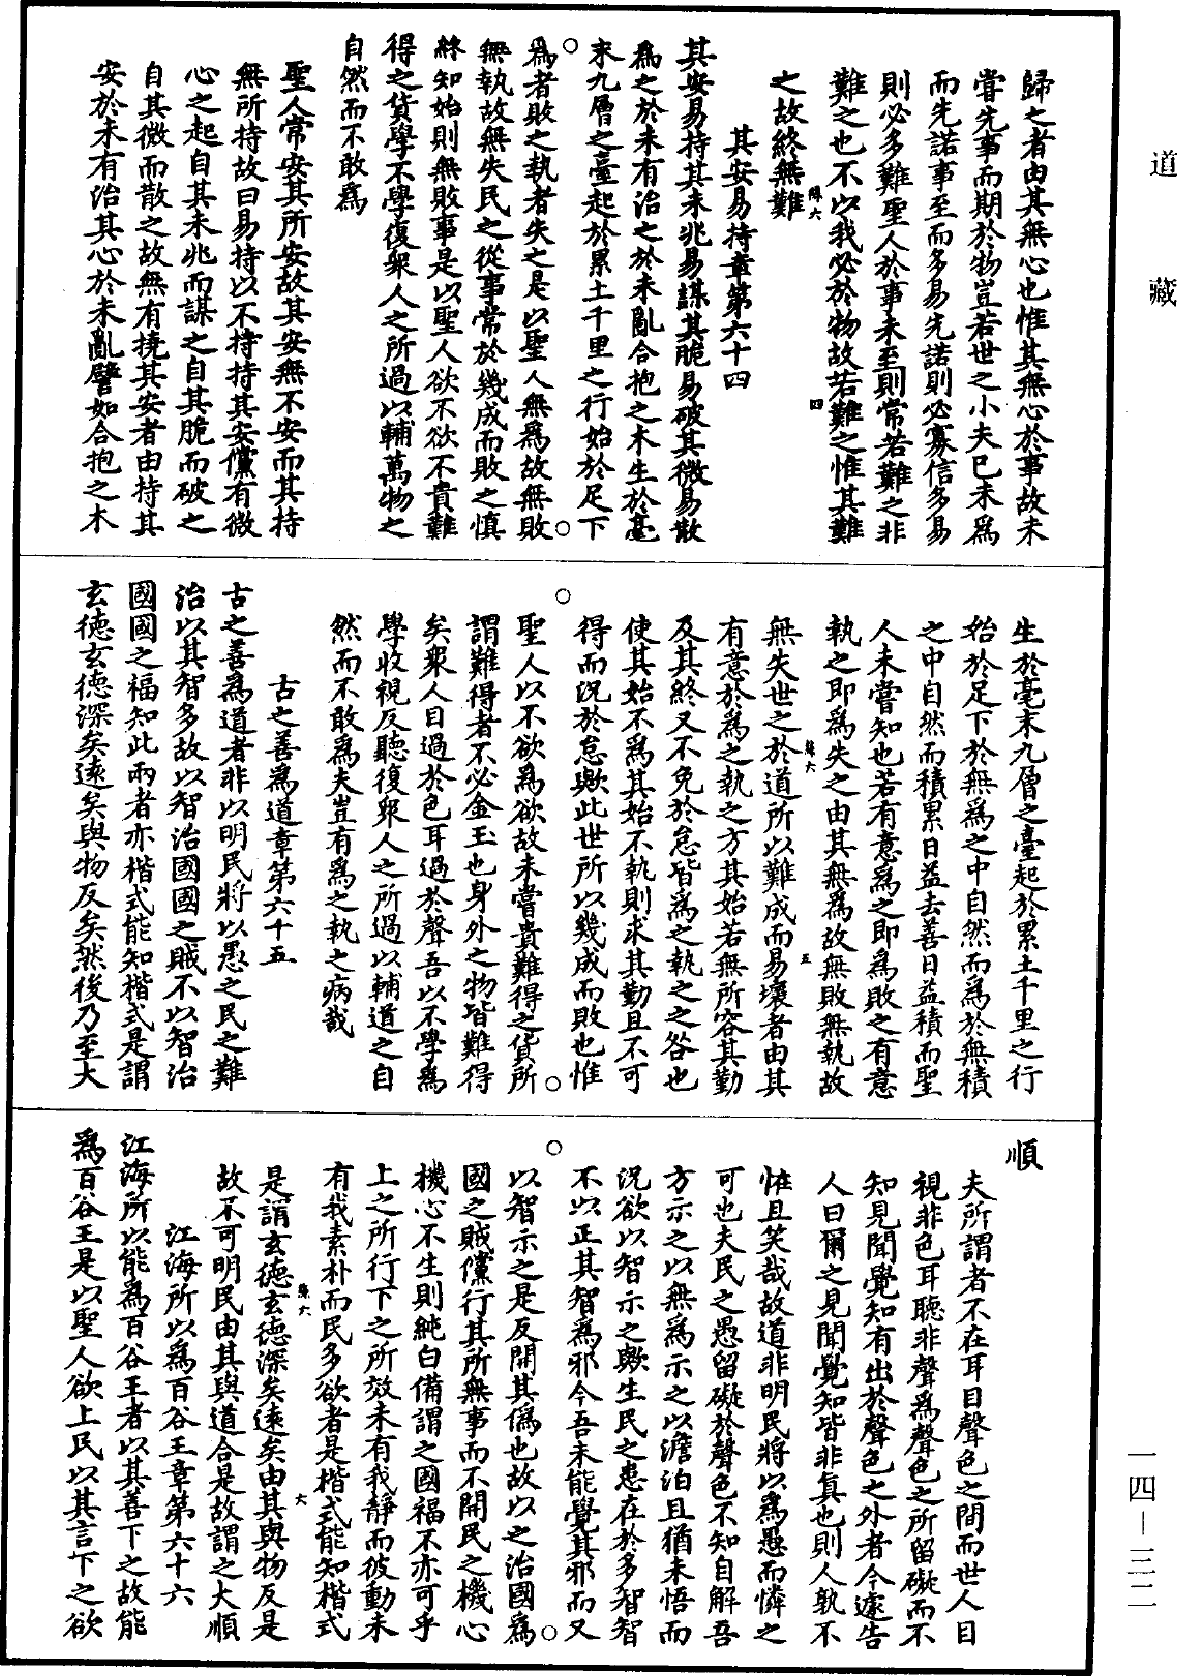 道藏
歸之者由其無心也惟其無心於事故未
嘗先事而期於物豈若世之小夫已未爲
而先諾事至而多易先諾則必寡信多易
則必多難聖人於事未至則常若難之非
難之也不以我必於物故若難之惟其難
之故終無難
其安易持章第六十四
其安易持其未兆易謀其脆易破其微易散
爲之於未有治之於未亂合抱之木生於毫
末九層之臺起於累土千里之行始於足下
爲者敗之執者失之是以聖人無爲故無敗
無執故無失民之從事常於幾成而敗之慎
終如始則無敗事是以聖人欲不欲不貴難
得之貨學不學復衆人之所過以輔萬物之
自然而不敢爲
聖人常安其所安故其安無不安而其持
無所持故曰易持以不持持其安儻有微
心之起自其未兆而謀之自其脆而破之
自其微而散之故無有撓其安者由持其
安於未有治其心於未亂譬如合抱之木
生於毫末九層之臺起於累土千里之行
始於足下於無爲之中自然而爲於無積
之中自然而積累日益去善日益積而聖
人未嘗知也若有意爲之即爲敗之有意
執之即爲失之由其無爲故無敗無執故
無失世之於道所以難成而易壞者由其
有意於爲之執之方其始若無所容其勤
及其終又不免於怠皆爲之執之之咎也
使其始不爲其始不執則求其勤且不可
得而況於怠歟此世所以幾成而敗也惟
聖人以不欲爲欲故未嘗貴難得之貨所
謂難得者不必金玉也身外之物皆難得
矣衆人目過於色耳過於聲吾以不學爲
學收視反聽復衆人之所過以輔道之自
然而不敢爲夫豈有爲之執之病哉
古之善爲道章第六十五
古之善爲道者非以明民將以愚之民之難
治以其智多故以智治國國之賊不以智治
國國之福知此兩者亦楷式能知楷式是謂
玄德玄德深矣遠矣與物反矣然後乃至大
順
夫所謂者不在耳目聲色之間而世人目
視非色耳聽非聲爲聲色之所留礙而不
知見聞覺知有出於聲色之外者今遽告
人曰爾之見聞覺知皆非真也則人孰不
怪且笑哉故道非明民將以爲愚而憐之
可也夫民之愚留礙於聲色不知自解吾
方示之以無爲示之以澹泊且猶未悟而
況欲以智示之歟生民之患在於多智智
不以正其智爲邪今吾未能覺其邪而又
以智示之是反開其僞也故以之治國爲
國之賊儻行其所無事而不開民之機心
機心不生則純白備謂之國福不亦可乎
上之所行下之所效未有我靜而彼動未
有我素朴而民多欲者是楷式能知楷式
是謂玄德玄德深矣遠矣由其與物反是
故不可明民由其與道合是故謂之大順
江海所以爲百谷王章第六十六
江海所以能爲百谷王者以其善下之故能
爲百谷王是以聖人欲上民以其言下之欲
一四—三一二